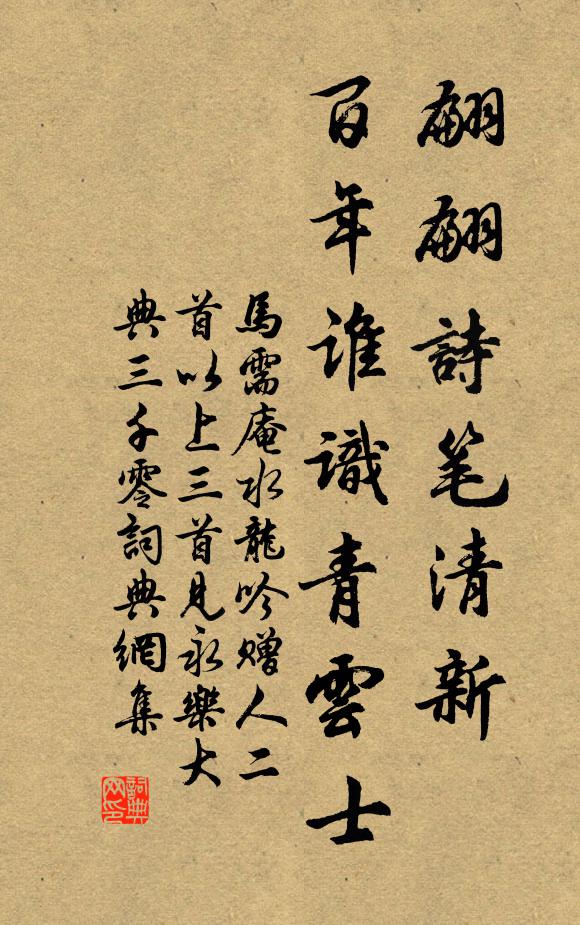 翩翩詩笔清新
百年誰識青雲士
馬需庵水龍吟贈人二
首以上三首見永樂大
典三千零詞典網集
詞典网印